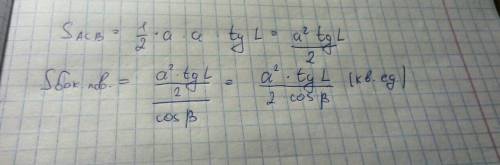 S ACB = 1/2 · a · a · tg L = a² · tg L / 2
S бок. пов. = (a² · tg L / 2) / cos β = a² · tg L / 2 cos β (кв. ед.)